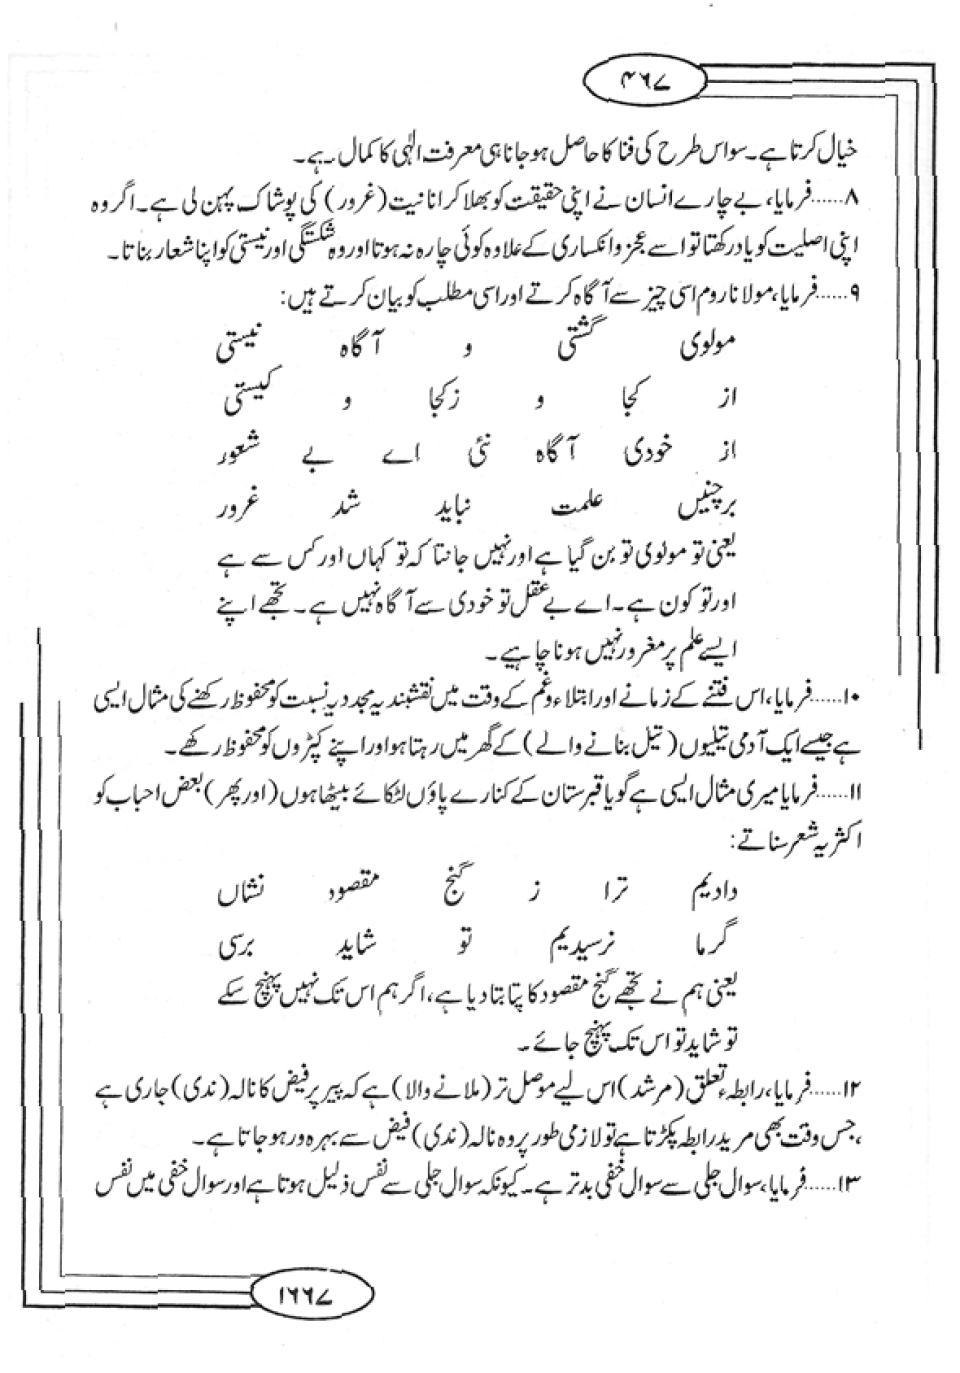 ۴۶۷
خیال کرتا ہے۔ سو اس طرح کی فنا کا حاصل ہو جانا ہی معرفت الٰہی کا کمال ہے۔
۸......فرمایا، بے چارے انسان نے اپنی حقیقت کو بھلا کر انانیت (غرور) کی پوشاک پہن لی ہے۔ اگر وہ
اپنی اصلیت کو یاد رکھتا تو اسے عجز و انکساری کے علاوہ کوئی چارہ نہ ہوتا اور وہ شکستگی اور نیستی کو اپنا شعار بناتا۔
۹......فرمایا، مولانا روم اسی چیز سے آگاہ کرتے اور اسی مطلب کو بیان کرتے ہیں:
مولوی گشتی و آگاہ نیستی
از کجا و زکجا و کیستی
از خودی آگاہ نئی اے بے شعور
برچنیں علمت نباید شد غرور
یعنی تو مولوی تو بن گیا ہے اور نہیں جانتا کہ تو کہاں اور کس سے ہے
اور تو کون ہے۔ اے بے عقل تو خودی سے آگاہ نہیں ہے۔ تجھے اپنے
ایسے علم پر مغرور نہیں ہونا چاہیے۔
۱۰......فرمایا، اس فتنے کے زمانے اور ابتلاء و غم کے وقت میں نقشبندیہ مجددیہ نسبت کو محفوظ رکھنے کی مثال ایسی
ہے جیسے ایک آدمی تیلیوں (تیل بنانے والے) کے گھر میں رہتا ہو اور اپنے کپڑوں کو محفوظ رکھے۔
۱۱......فرمایا میری مثال ایسی ہے گویا قبرستان کے کنارے پاؤں لٹکائے بیٹھا ہوں (اور پھر) بعض احباب کو
اکثر یہ شعر سناتے:
دادیم ترا ز گنج مقصود نشاں
گرما نرسیدیم تو شاید برسی
یعنی ہم نے تجھے گنج مقصود کا پتا بتا دیا ہے، اگر ہم اس تک نہیں پہنچ سکے
تو شاید تو اس تک پہنچ جائے۔
۱۲......فرمایا، رابطہ ء تعلق (مرشد) اس لیے موصل تر (ملانے والا) ہے کہ پیر پر فیض کا نالہ (ندی) جاری ہے
،جس وقت بھی مرید رابطہ پکڑتا ہے تو لازمی طور پر وہ نالہ (ندی) فیض سے بہرہ ور ہو جاتا ہے۔
۱۳......فرمایا، سوال جلی سے سوال خفی بدتر ہے۔ کیونکہ سوال جلی سے نفس ذلیل ہوتا ہے اور سوال خفی میں نفس
۱۶۶۷